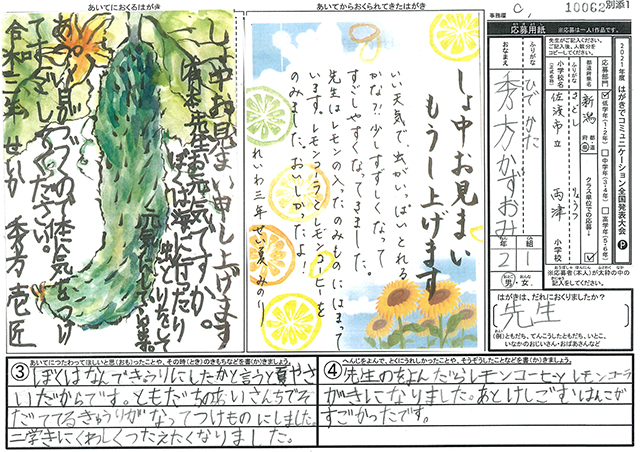 10062別添1
事務局
あいてにおくるはがき
あいてからおくられてきたはがき
応募用紙
※応募は一人1作品です。
2021年度 はがきでコミュニケーション全国発表大会
応募部門
低学年(1・2年)
中学年(3・4年)
高学年(5・6年)
都道府県名
新潟
小学校名
佐渡市立
両津
小学校
りょうつ
さどし
クラス単位での応募
ふりがな
ひでかた
おなまえ
秀方かずおみ
2年
1組
男・女
はがきは、だれにおくりましたか?
先生
(例)ともだち、てんこうしたともだち、いとこ、
いなかのおじいさん・おばあさんなど
しょ中お見まい申し上げます
先生お元気ですか。
ぼくは海に行ったり
虫とりをして
元気
あつい日がつづくので体気をつけ
てすごしてください。
令和三年 せいか 秀方壱匠
しょ中お見まい
もうし上げます
いい天気で虫がいっぱいとれる
かな?!少しすずしくなって
すごしやすくなってきました。
先生はレモンののみものにはまって
います。レモンコーラとレモンコーヒーを
のみました。おいしかったよ!
れいわ三年 せい夏 みのり
③
あいてにつたわってほしいと思(おも)ったことや、その時(とき)のきもちなどを書(か)きましょう。
ぼくはなんできゅうりにしたかと言うと夏やさ
いだからです。ともだちのあいさんちでそ
だててるきゅうりがなってつけものにしました。
二学きにくわしくつたえたくなりました。
④
へんじをよんで、とくにうれしかったことや、そうぞうしたことなどを書(か)きましょう。
先生のをよんだらレモンコーヒーとレモンコーラ
がきになりました。あとけしごむはんこが
すごかったです。